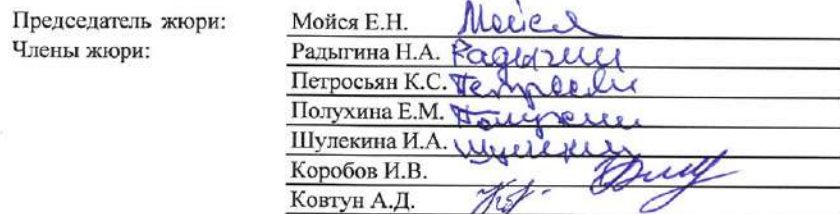 Председатель жюри: Мойся Е.Н. Мойся
Члены жюри: Радыгина Н.А. Радыгин
Петросьян К.С. Петросьян
Полухина Е.М. Полухин
Шулекина И.А. Шулекин
Коробов И.В.
Ковтун А.Д.